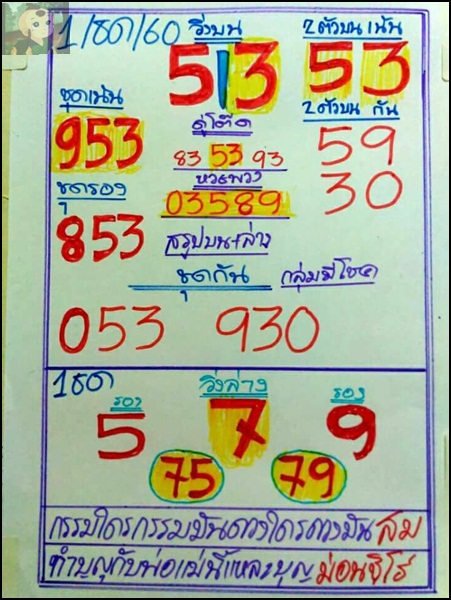 1/ธค/60 วิ่งบน 2 ตัวบน เน้น
5 | 3 53
ชุดเน้น คู่โต๊ด 2 ตัวบน กัน
953 83 53 93 59
ชุดรอง หวยพวง 30
853 03589
สรุปบน+ล่าง
ชุดกัน กลุ่มมีโชค
053 930
1 ธค วิ่งล่าง
รอง รอง
5 7 9
75 79
กรรมใครกรรมมันดวงใครดวงมัน สม
ทำบุญกับพ่อแม่นี้แหละบุญ ม่อนชิโร่